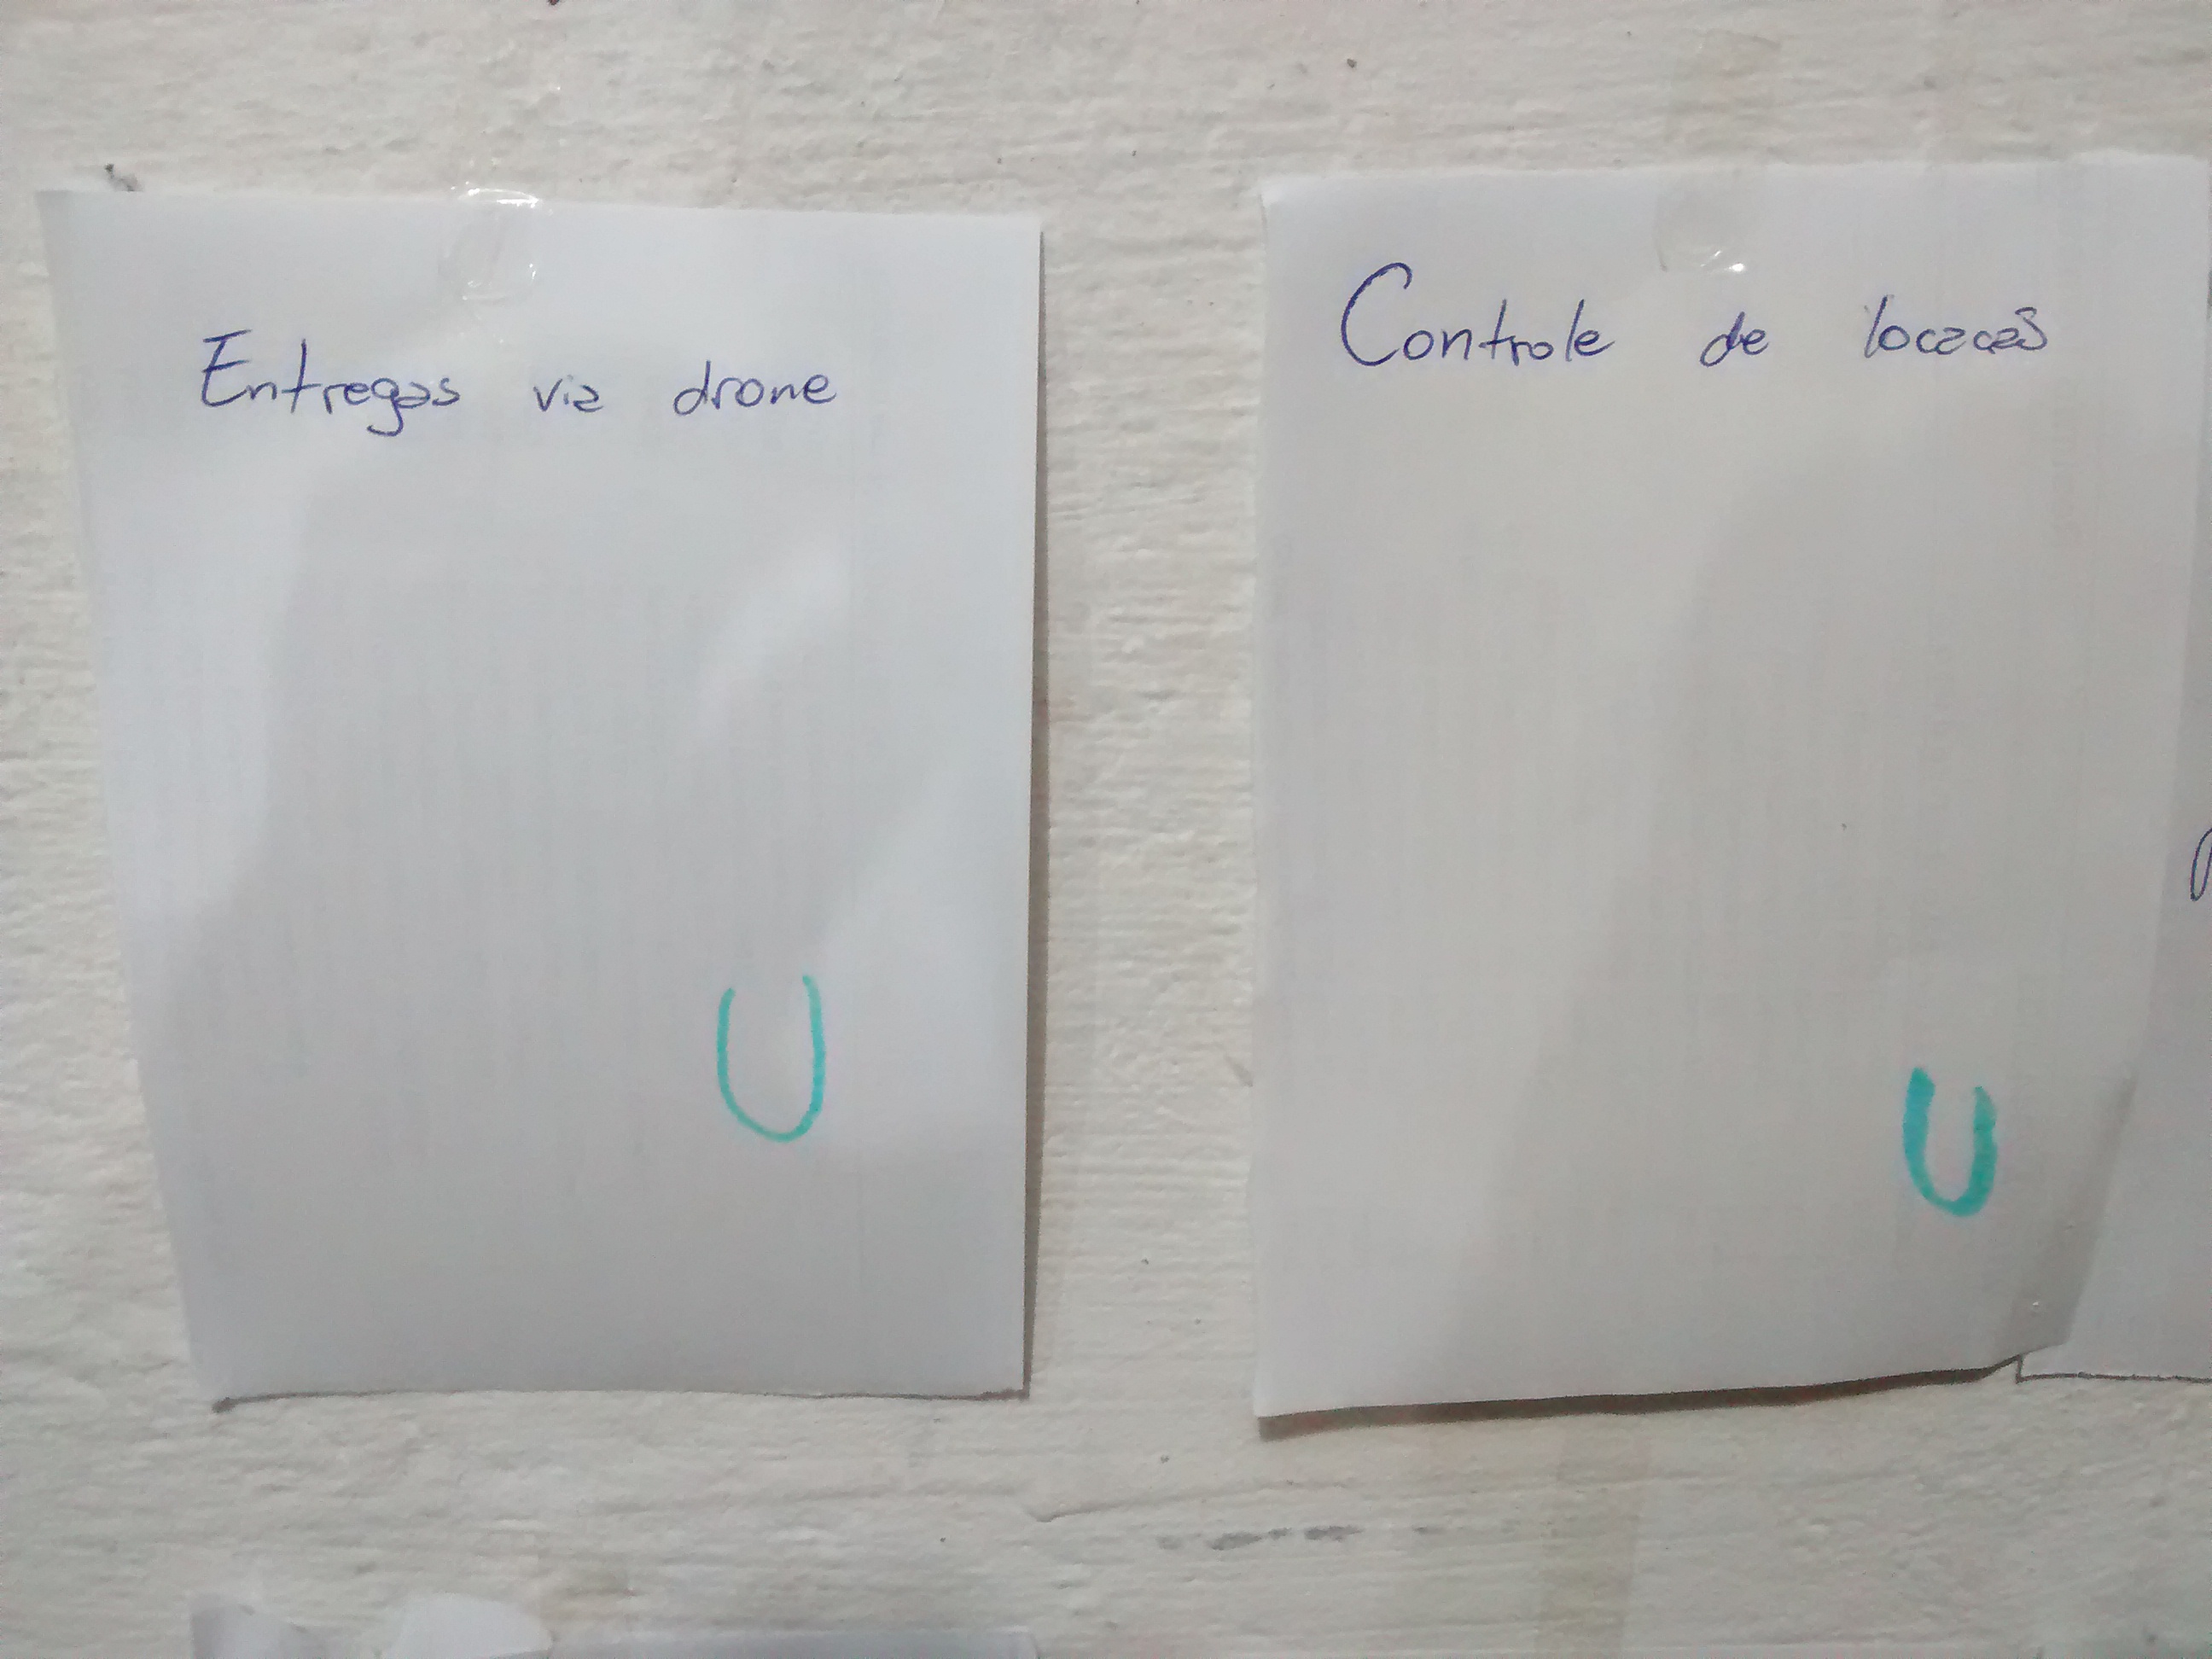 Entregas via drone
Controle de locacas
U
U